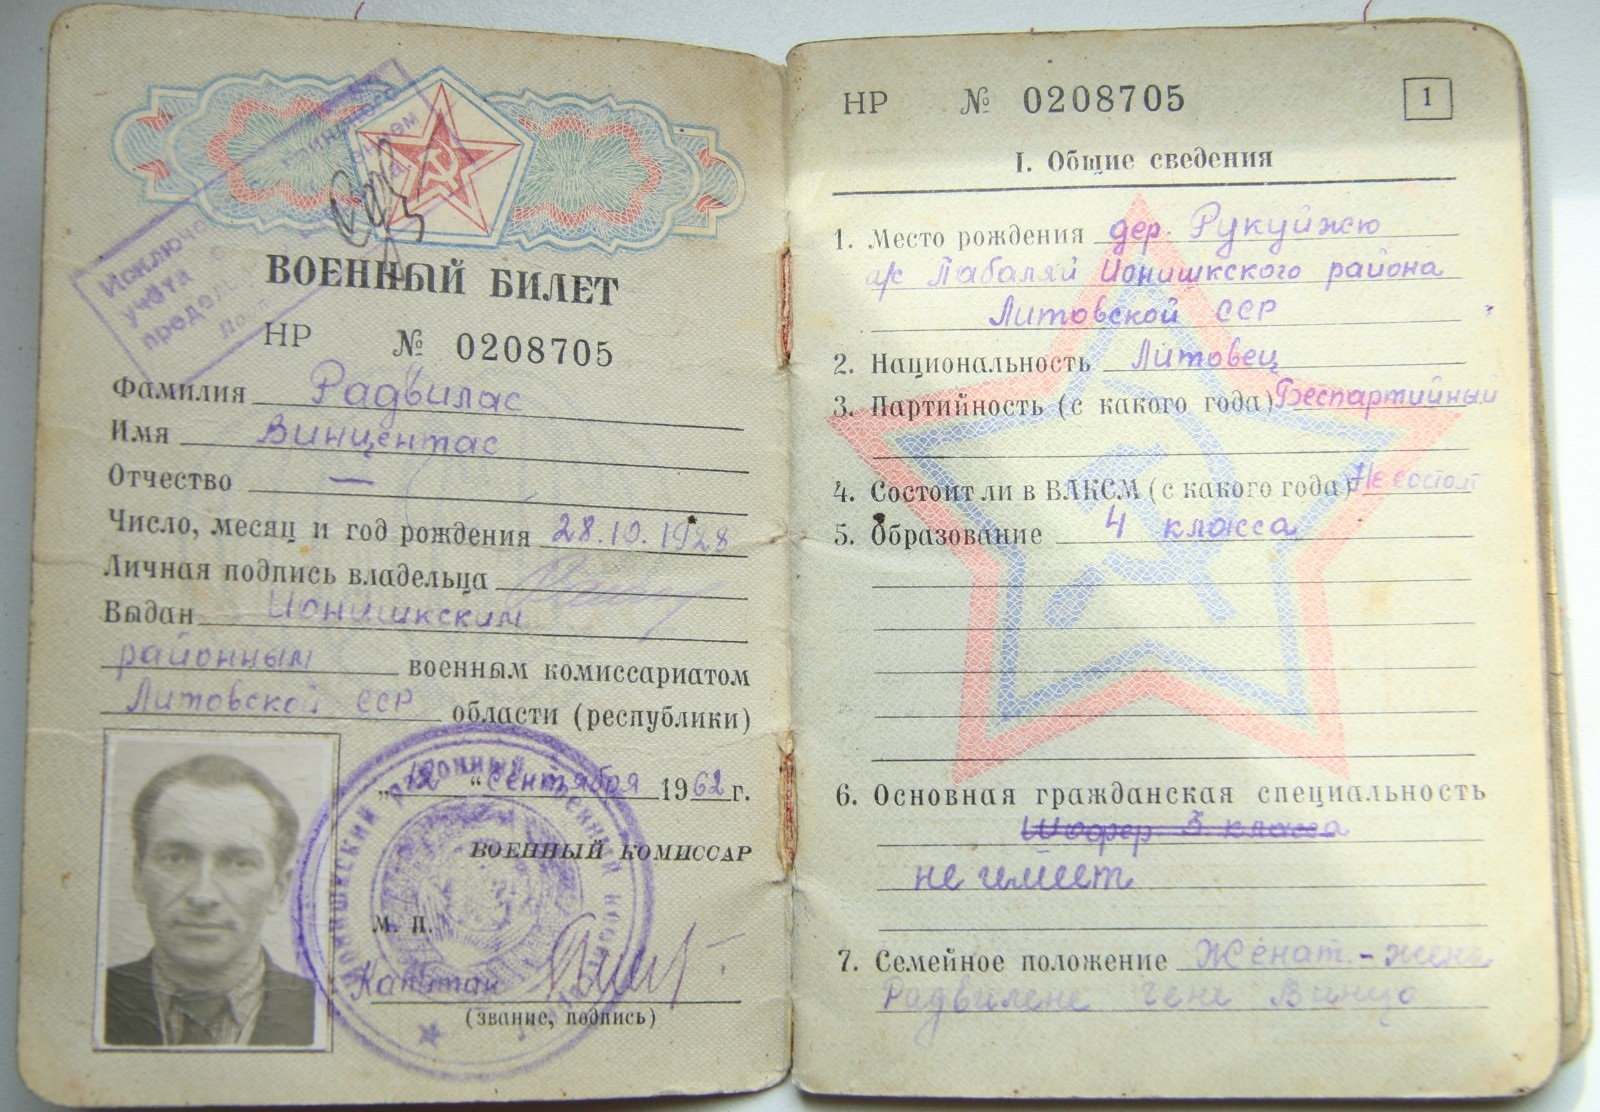 Исключ
учёта
предель
ВОЕННЫЙ БИЛЕТ
НР № 0208705
Фамилия Радвилас
Имя Винцентас
Отчество —
Число, месяц и год рождения 28.10.1928
Личная подпись владельца
Выдан Ионишкским
районным военным комиссариатом
Литовской ССР области (республики)
„12“ Сентября 1962 г.
ВОЕННЫЙ КОМИССАР
М. П.
Капитан
(звание, подпись)
НР № 0208705 1
I. Общие сведения
1. Место рождения дер. Рукуйжю
а/с Пабаляй Ионишкского района
Литовской ССР
2. Национальность Литовец
3. Партийность (с какого года) Беспартийный
4. Состоит ли в ВЛКСМ (с какого года) Не состоит
5. Образование 4 класса
6. Основная гражданская специальность
Шофер 3 класса
не имеет
7. Семейное положение Женат - жена
Радвилене Гене Винцо